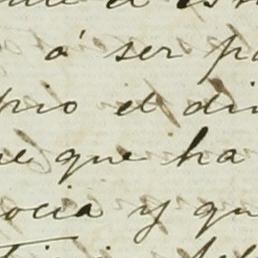 á ser pa
pio el din
ue que ha
ocia y qu